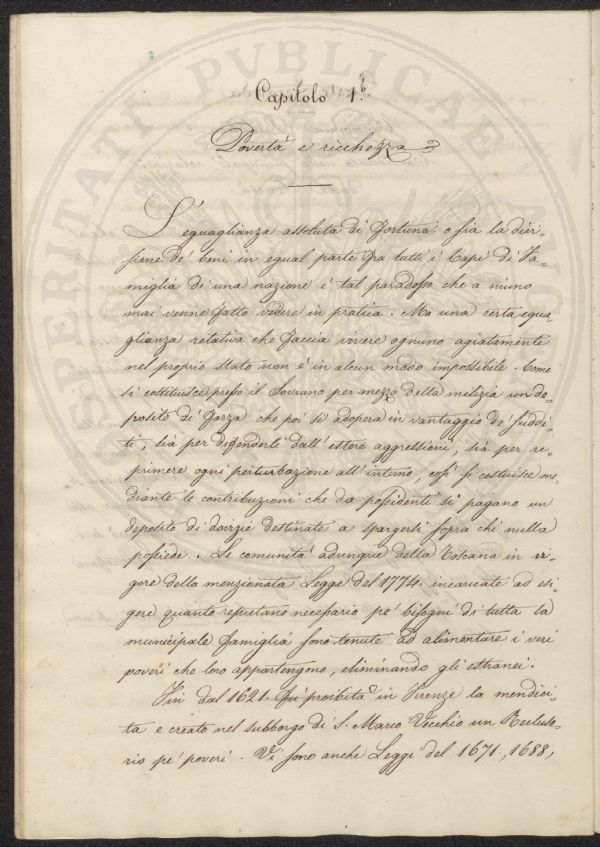 Capitolo 1º
Povertà e ricchezza
L'eguaglianza assoluta di fortuna o sia la divi=
sione de' beni in egual parte fra tutti i Capi di Fa=
miglia di una nazione è tal paradosso che a niuno
mai venne fatto vedere in pratica. Ma una certa egua=
glianza relativa che faccia vivere ognuno agiatamente
nel proprio stato non è in alcun modo impossibile. Come
si costituisce presso il Sovrano per mezzo della milizia un de=
posito di forza che poi si adopera in vantaggio de' suddi=
ti, sia per difenderli dall'estere aggressioni, sia per re=
primere ogni perturbazione all'interno, così si costuisce me=
diante le contribuzioni che da possidenti si pagano un
deposito di dovizie destinate a spargersi sopra chi nulla
possiede. Le comunità adunque della Toscana in vi=
gore della menzionata Legge del 1774. incaricate ad esi=
gere quanto reputano necessario pe' bisogni di tutta la
municipale famiglia sono tenute ad alimentare i veri
poveri che loro appartengono, eliminando gli estranei.
Fin dal 1621. fù proibita in Firenze la mendici=
tà e creato nel subborgo di S. Marco Vecchio un Recluso=
rio pe' poveri. Vi sono anche Leggi del 1671, 1688,